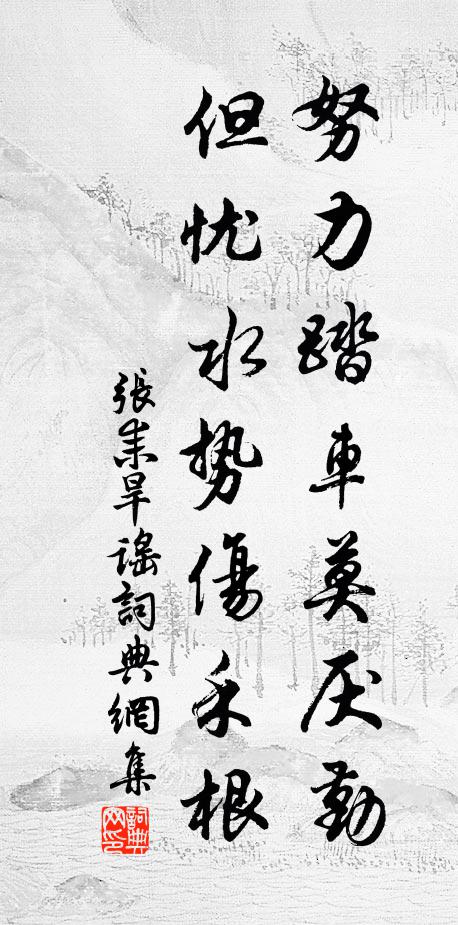 努力踏車莫厌勤
但忧水势傷禾根
張耒旱谣詞典網集
詞典网印